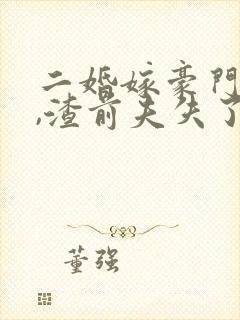 二婚嫁豪门
,渣前夫失了
董强